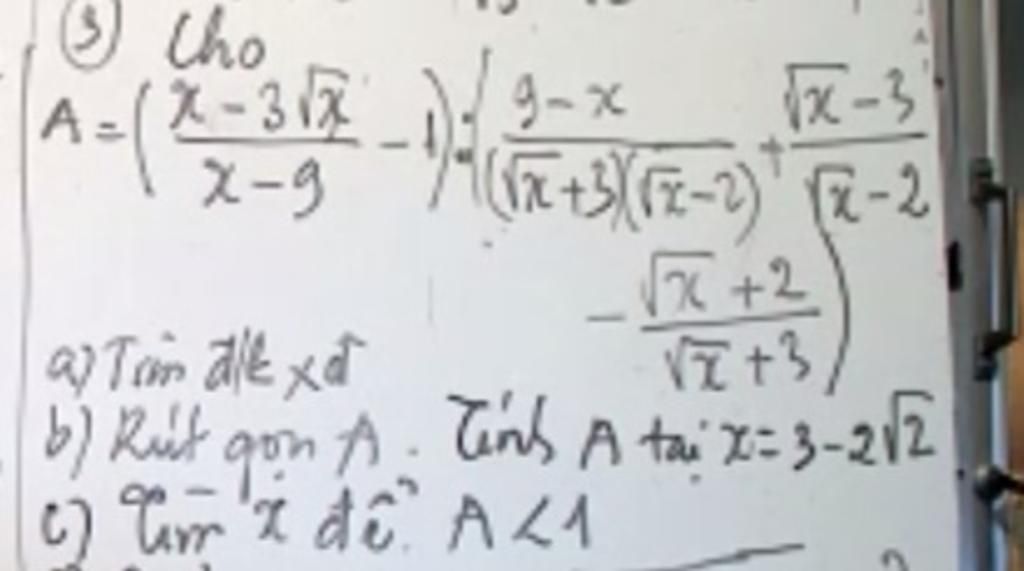 ③ Cho
A = ( (x - 3√x)/(x - 9) - 1 ) : ( (9 - x)/((√x + 3)(√x - 2)) + (√x - 3)/(√x - 2)
- (√x + 2)/(√x + 3) )
a) Tìm đ/k xđ
b) Rút gọn A. Tính A tại x = 3 - 2√2
c) Tìm x để A < 1